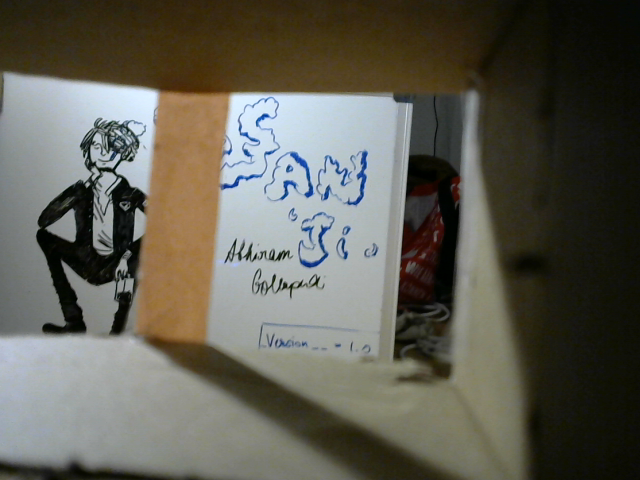 SAN
Ji.
Abhiram
Gollapudi
Version__ = 1.0